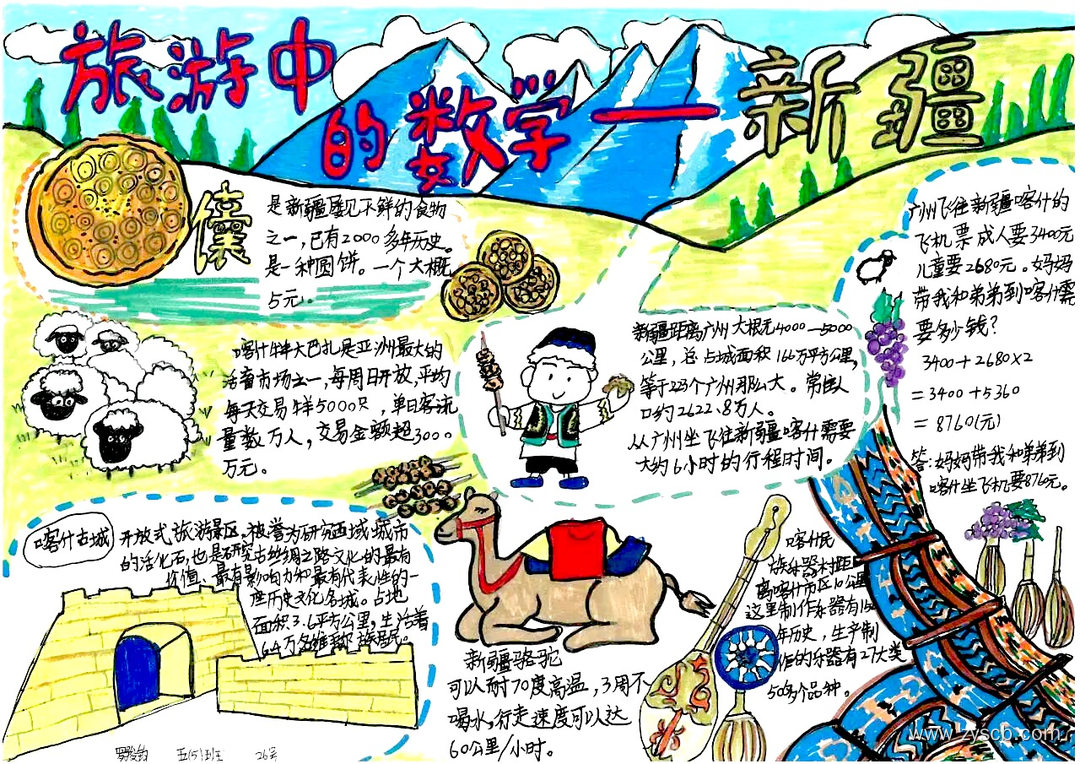 旅游中
的数学—新疆
馕
是新疆屡见不鲜的食物
之一,已有2000多年历史。
是一种圆饼。一个大概
5元。
喀什牛羊大巴扎是亚洲最大的
活畜市场之一,每周日开放,平均
每天交易牛羊5000只,单日客流
量数万人,交易金额超3000
万元。
新疆距离广州大概无4000—5000
公里,总占城面积166万平方公里,
等于223个广州那么大。常住人
口约2622.8万人。
从广州坐飞往新疆喀什需要
大约6小时的行程时间。
广州飞往新疆喀什的
飞机票成人要3400元
儿童要2680元。妈妈
带我和弟弟到喀什需
要多少钱?
3400+2680×2
=3400+5360
=8760(元)
答:妈妈带我和弟弟到
喀什坐飞机要8760元。
喀什古城
开放式旅游景区,被誉为研究西域城市
的活化石,也是研究古丝绸之路文化的最有
价值、最有影响力和最有代表性的一
座历史文化名城。占地
面积3.6平方公里,生活着
6.4万名维吾尔族居民。
新疆骆驼
可以耐70度高温,3周不
喝水,行走速度可以达
60公里/小时。
喀什民
族乐器村距
离喀什市区10公里
这里制作乐器有150
年历史,生产制
作的乐器有27大类
50多个品种。
五(5)班 26号
www.zyscb.com